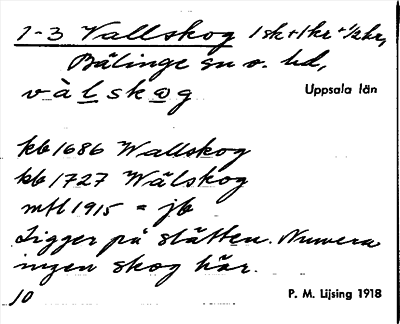 1-3 Vallskog 1 sk + 1 kr + 1/2 kr,
Bälinge sn o. hd,
vàlskog
Uppsala län
kb 1686 Wallskog
kb 1727 Wälskog
mtl 1915 = jb
Ligger på slätten. Numera
ingen skog här.
10
P. M. Lijsing 1918